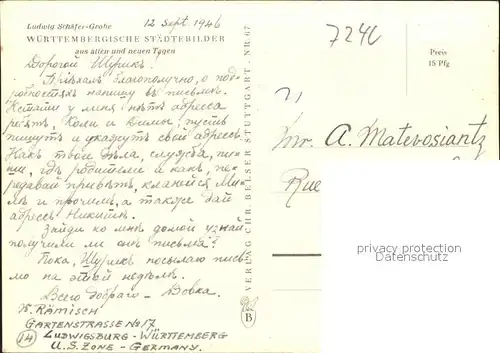 Ludwig Schäfer-Grohe
12 Sept. 1946
WÜRTTEMBERGISCHE STÄDTEBILDER
aus alten und neuen Tagen
Дорогой Шурик!
Приѣхалъ благополучно, о под-
робностяхъ напишу въ письмѣ.
Кстати у меня нѣтъ адреса
ребятъ, Коли и пусть
пишутъ и укажутъ свой адресъ.
Какъ твои дѣла, служба, пи-
ши, гдѣ родители и какъ, пе-
редавай привѣтъ, кланяйся
и прочимъ, а также дай
адресъ Никиты.
Зайди ко мнѣ домой узнай
получили ли они письма?
Пока, Шурикъ посылаю пись-
мо на этой недѣлѣ.
Всего добраго — Вовка.
K. RÄMISCH
GARTENSTRASSE No 17
14 LUDWIGSBURG - WÜRTTEMBERG
U.S. ZONE - GERMANY.
VERLAG CHR. BELSER STUTTGART. NR 67
B
7246
Preis
15 Pfg
Mr. A. Matevosiantz
Rue
privacy protection
Datenschutz